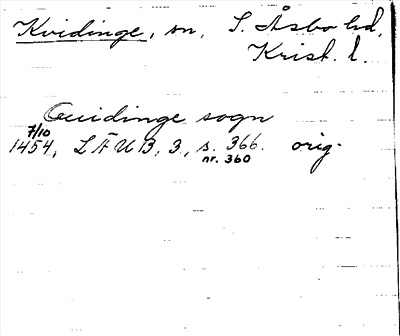 Kvidinge, sn, S. Åsbo hd,
Krist. l.
Quidinge sogn
7/10
1454, LÄUB, 3, s. 366. orig.
nr. 360